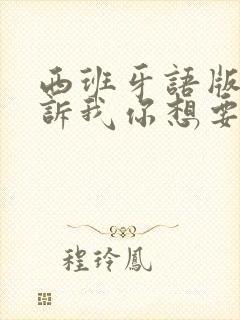 西班牙語版
訴我你想要
程玲鳳